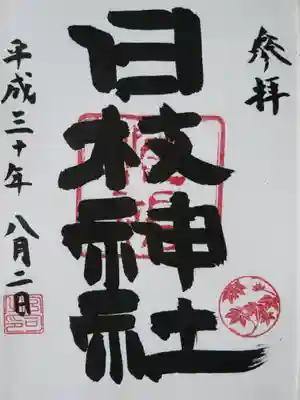 参拝
日枝神社
平成三十年 八月二日